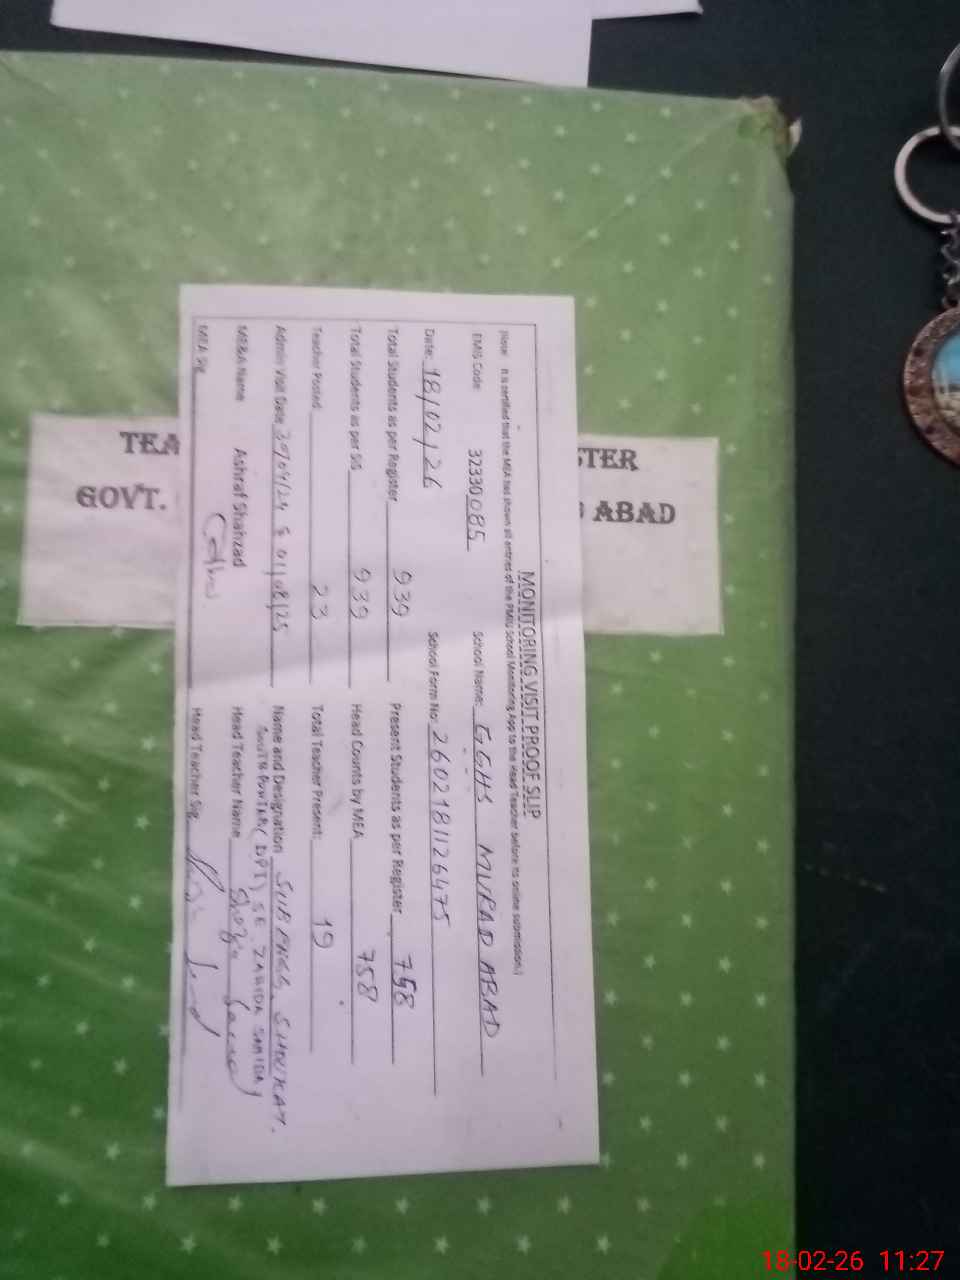 MONITORING VISIT PROOF SLIP
(Note: It is certified that the MEA has shown all entries of the PMIU School Monitoring App to the Head Teacher before its online submission.)
EMIS Code 32330085 School Name: GGHS MURAD ABAD
Date: 18/02/26 School Form No: 2602181126475
Total Students as per Register 939 Present Students as per Register 758
Total Students as per SIS 939 Head Counts by MEA 758
Teacher Posted 23 Total Teacher Present: 19
Admin Visit Date & 01/08/25 Name and Designation
SOUTH PUNJAB (DPI) SE ZAHIDA
MEA Name Ashraf Shahzad Head Teacher Name
MEA Sig Head Teacher Sig
TEA STER
GOVT. ABAD
18-02-26 11:27